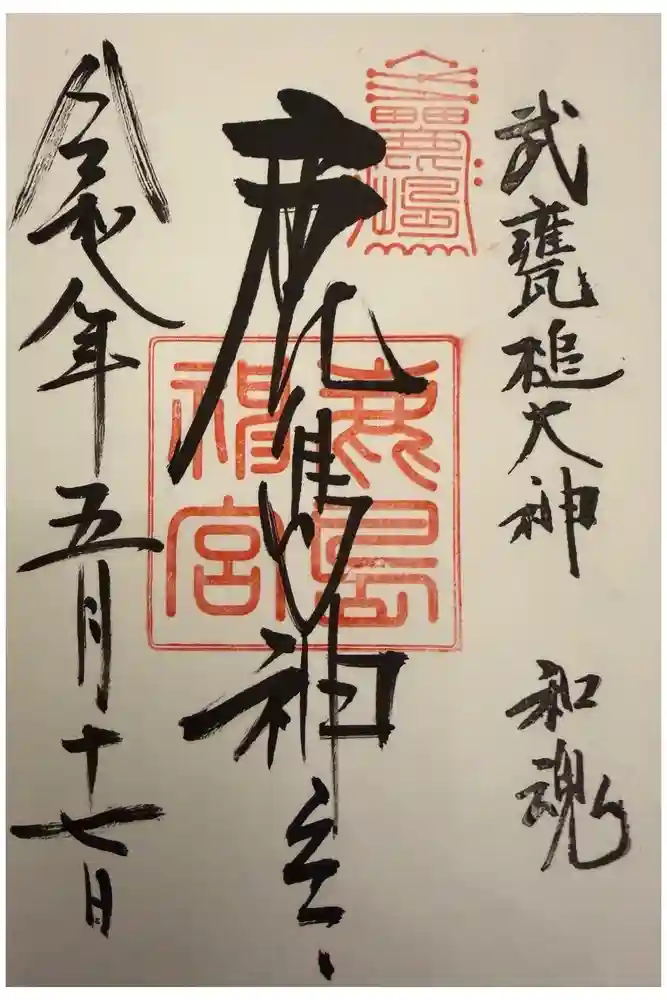 武甕槌大神 和魂
鹿島神宮
令和年五月十七日
鹿島
神宮